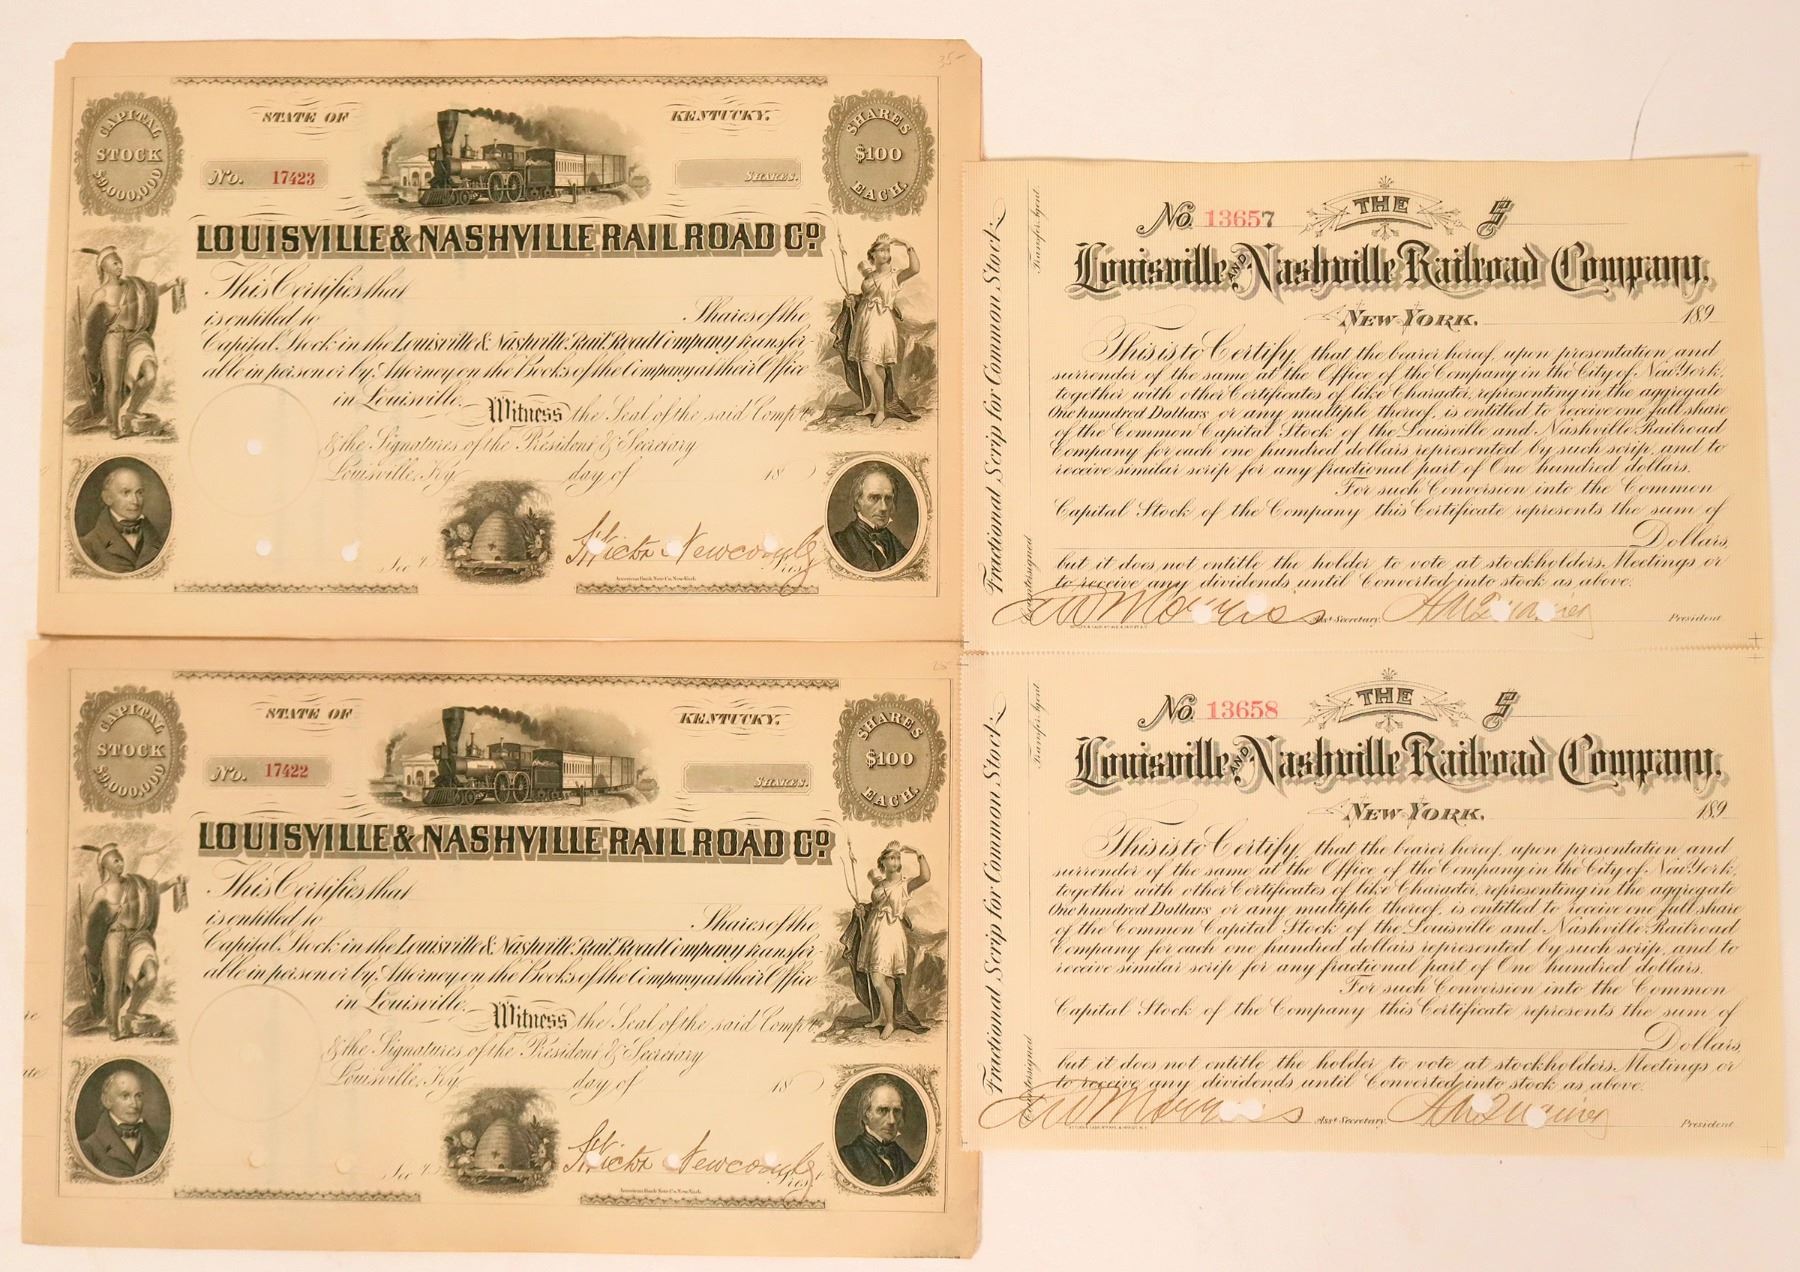 35-
CAPITAL
STOCK
$9,000,000
STATE OF
KENTUCKY.
SHARES
$100
EACH.
No. 17423
SHARES.
LOUISVILLE & NASHVILLE RAIL ROAD Co
This Certifies that
is entitled to Shares of the
Capital Stock in the Louisville & Nashville Rail Road Company transfer-
able in person or by Attorney on the Books of the Company at their Office
in Louisville. Witness the Seal of the said Compy
& the Signatures of the President & Secretary
Louisville, Ky day of 18
Sec y
H. Victor Newcomb
Pres
American Bank Note Co. New York
25-
CAPITAL
STOCK
$9,000,000
STATE OF
KENTUCKY.
SHARES
$100
EACH.
No. 17422
SHARES.
LOUISVILLE & NASHVILLE RAIL ROAD Co
This Certifies that
is entitled to Shares of the
Capital Stock in the Louisville & Nashville Rail Road Company transfer-
able in person or by Attorney on the Books of the Company at their Office
in Louisville. Witness the Seal of the said Compy
& the Signatures of the President & Secretary
Louisville, Ky day of 18
Sec y
H. Victor Newcomb
Pres
American Bank Note Co. New York
Fractional Scrip for Common Stock
Countersigned
Transfer Agent
No. 13657 THE $
Louisville AND Nashville Railroad Company.
NEW YORK. 189
This is to Certify, that the bearer hereof, upon presentation and
surrender of the same at the Office of the Company in the City of New York,
together with other Certificates of like Character, representing in the aggregate
One hundred Dollars or any multiple thereof, is entitled to receive one full share
of the Common Capital Stock of the Louisville and Nashville Railroad
Company for each one hundred dollars represented by such scrip, and to
receive similar scrip for any fractional part of One hundred dollars.
For such Conversion into the Common
Capital Stock of the Company this Certificate represents the sum of
Dollars,
but it does not entitle the holder to vote at stockholders Meetings or
to receive any dividends until Converted into stock as above.
Asst Secretary.
President
Fractional Scrip for Common Stock
Countersigned
Transfer Agent
No. 13658 THE $
Louisville AND Nashville Railroad Company.
NEW YORK. 189
This is to Certify, that the bearer hereof, upon presentation and
surrender of the same at the Office of the Company in the City of New York,
together with other Certificates of like Character, representing in the aggregate
One hundred Dollars or any multiple thereof, is entitled to receive one full share
of the Common Capital Stock of the Louisville and Nashville Railroad
Company for each one hundred dollars represented by such scrip, and to
receive similar scrip for any fractional part of One hundred dollars.
For such Conversion into the Common
Capital Stock of the Company this Certificate represents the sum of
Dollars,
but it does not entitle the holder to vote at stockholders Meetings or
to receive any dividends until Converted into stock as above.
Asst Secretary.
President